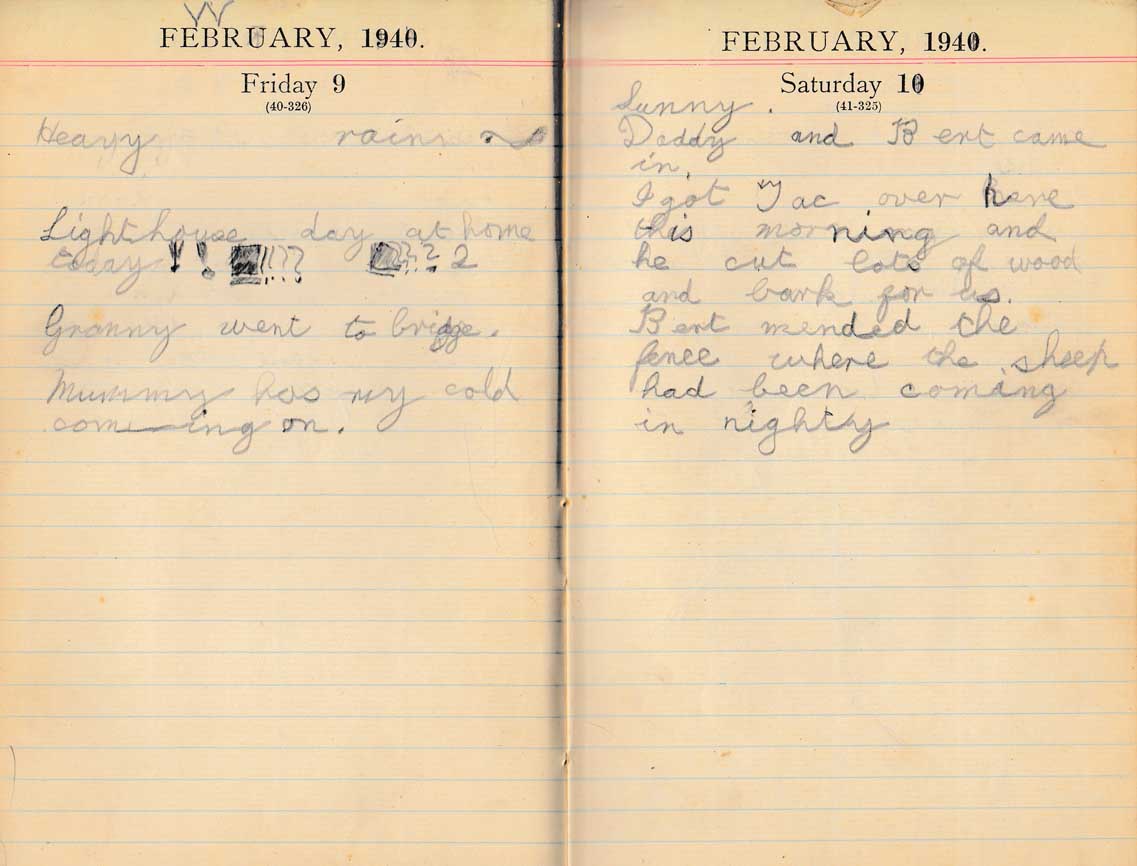 FEBRUARY, 1940.
Friday 9
(40-326)
Heavy rain
Lighthouse day at home
today !! !!?? ??? 2
Granny went to bridge.
Mummy has my cold
comming on.
FEBRUARY, 1940.
Saturday 10
(41-325)
Sunny.
Daddy and Bert came
in.
I got Jac over here
this morning and
he cut lots of wood
and bark for us.
Bert mended the
fence where the sheep
had been coming
in nighty